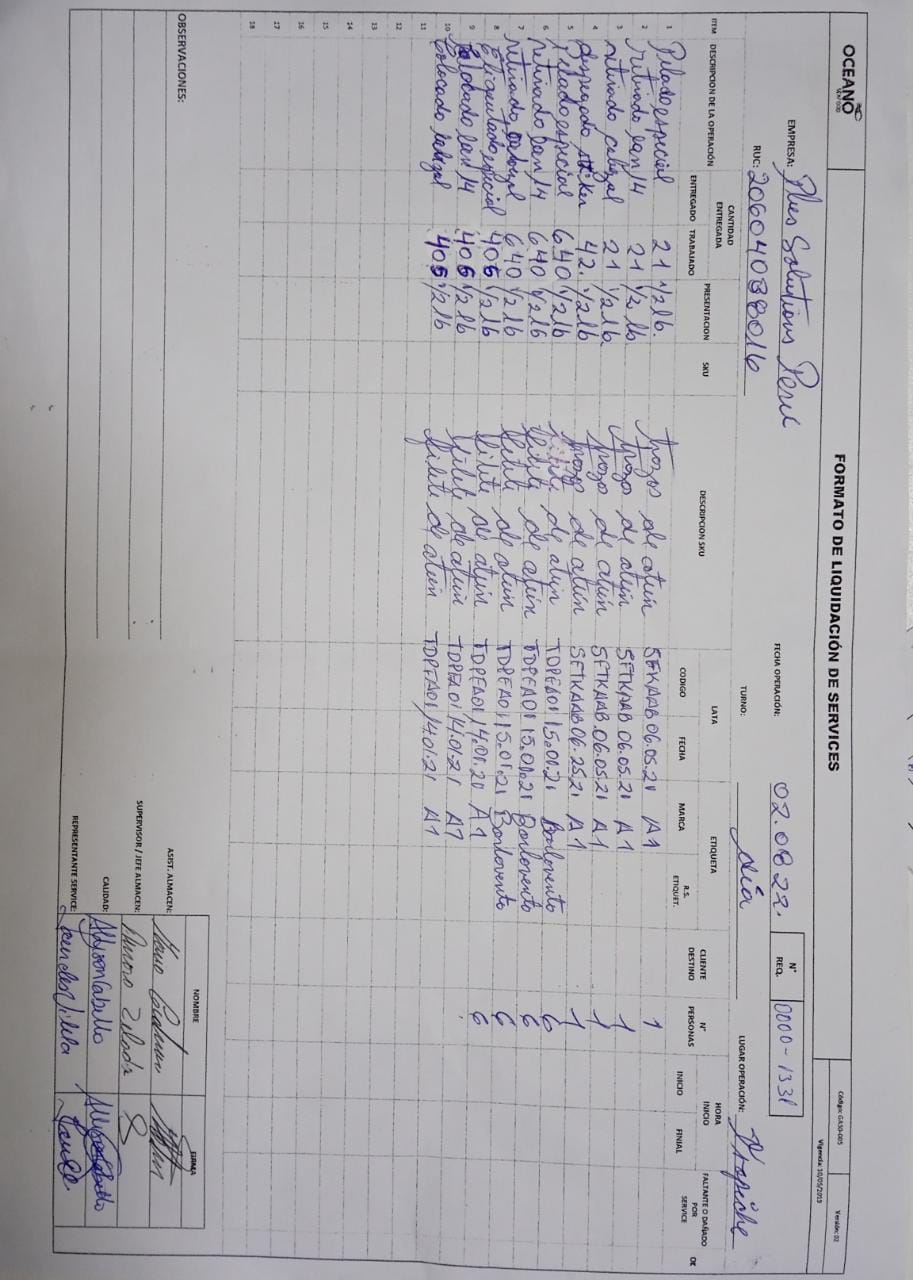 OCEANO
SEAFOOD
FORMATO DE LIQUIDACIÓN DE SERVICES
Código: GASO-005
Versión: 02
Vigencia: 10/05/2019
EMPRESA: Plus Solutions Perú
FECHA OPERACIÓN: 02.08.22.
N° REQ. 0000-1331
LUGAR OPERACIÓN: Trapiche
RUC: 20604038016
TURNO: día
ITEM DESCRIPCION DE LA OPERACIÓN CANTIDAD ENTREGADA ENTREGADO TRABAJADO PRESENTACION SKU DESCRIPCION SKU LATA CODIGO FECHA ETIQUETA MARCA R.S. ETIQUET. CLIENTE DESTINO N° PERSONAS HORA INICIO INICIO FINIAL FALTANTE O DAÑADO POR SERVICE OK
1 Pelado especial 21 1/2 lb. trozos de atún 06.05.21 A1 1
2 retirado ban/4 21 1/2 lb trozos de atún 06.05.21 A1
3 retirado cabezal 21 1/2 lb. trozos de atún 06.05.21 A1 1
4 despegado stiker 42. 1/2 lb trozos de atún 06.25.21 A1 1
5 Pelado especial 640 1/2 lb filete de atún TDPEA01 15.01.21 Barlovento 6
6 retirado ban/4 640 1/2 lb filete de atún TDPEA01 15.01.21 Barlovento 6
7 retirado cabezal 640 1/2 lb filete de atún TDPEA01 15.01.21 Barlovento 6
8 Etiquetado especial 405 1/2 lb filete de atún TDPEA01 14.01.21 A1 6
9 Colocado ban/4 405 1/2 lb filete de atún TDPEA01 14.01.21 A1
10 Colocado cabezal 405 1/2 lb filete de atún TDPEA01 14.01.21 A1
11
12
13
14
15
16
17
18
OBSERVACIONES:
NOMBRE FIRMA
ASIST. ALMACEN:
SUPERVISOR / JEFE ALMACEN:
CALIDAD: Allyson Cabello
REPRESENTANTE SERVICE: